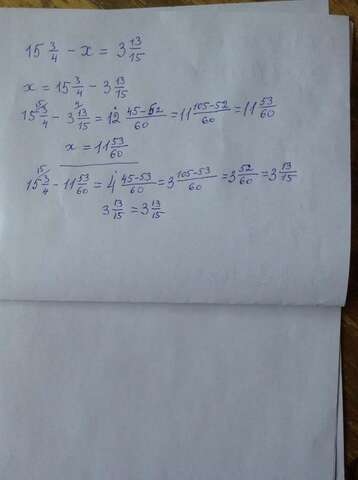 15 3/4 - x = 3 13/15
x = 15 3/4 - 3 13/15
15 3/4 - 3 13/15 = 12 45-52/60 = 11 105-52/60 = 11 53/60
x = 11 53/60
15 3/4 - 11 53/60 = 4 45-53/60 = 3 105-53/60 = 3 52/60 = 3 13/15
3 13/15 = 3 13/15